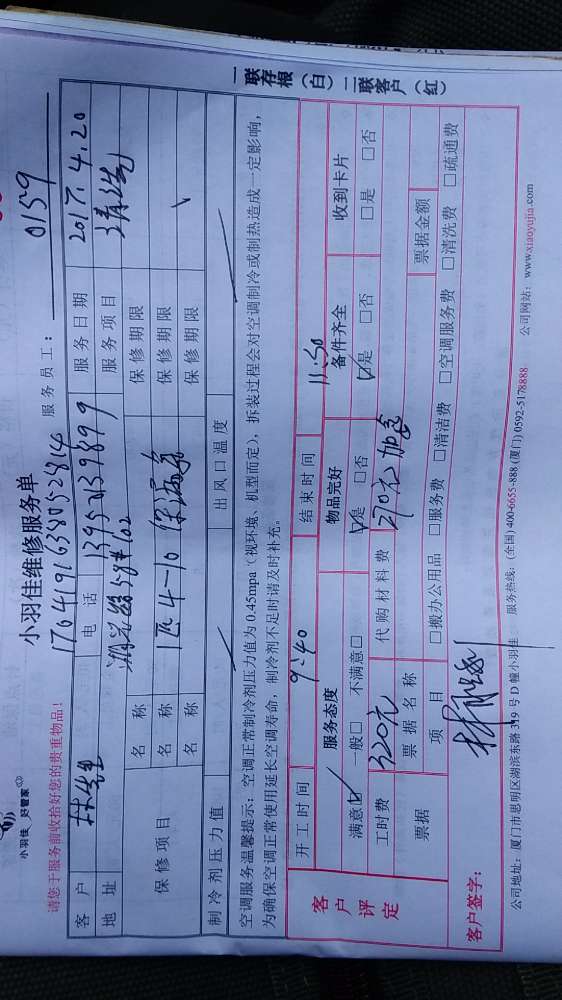 小羽佳 好管家
小羽佳维修服务单
请您于服务前收拾好您的贵重物品!
17041916380052814
服务员工: 0159
客户 林先生 电话 13950139899 服务日期 2017.4.20
地址 58#102 服务项目 清洗
保修项目 名称 保修期限
名称 1匹4-10 保修期限
名称 保修期限
制冷剂压力值 出风口温度
空调服务温馨提示:空调正常制冷剂压力值为0.45mpa(视环境、机型而定),拆装过程会对空调制冷或制热造成一定影响,
为确保空调正常使用延长空调寿命,制冷剂不足时请及时补充。
开工时间 9:40 结束时间 11:50
客户评定 服务态度 物品完好 备件齐全 收到卡片
满意☑ 一般□ 不满意□ ☑是 □否 ☑是 □否 □是 □否
工时费 320元 代购材料费 270元
票据 票据名称 票据金额
项目 □搬办公用品 □服务费 □清洁费 □空调服务费 □清洗费 □疏通费
客户签字:
公司地址:厦门市思明区湖滨东路319号D幢小羽佳 服务热线:(全国)400-6655-888 (厦门)0592-5178888 公司网站:www.xiaoyujia.com
一联存根(白)二联客户(红)